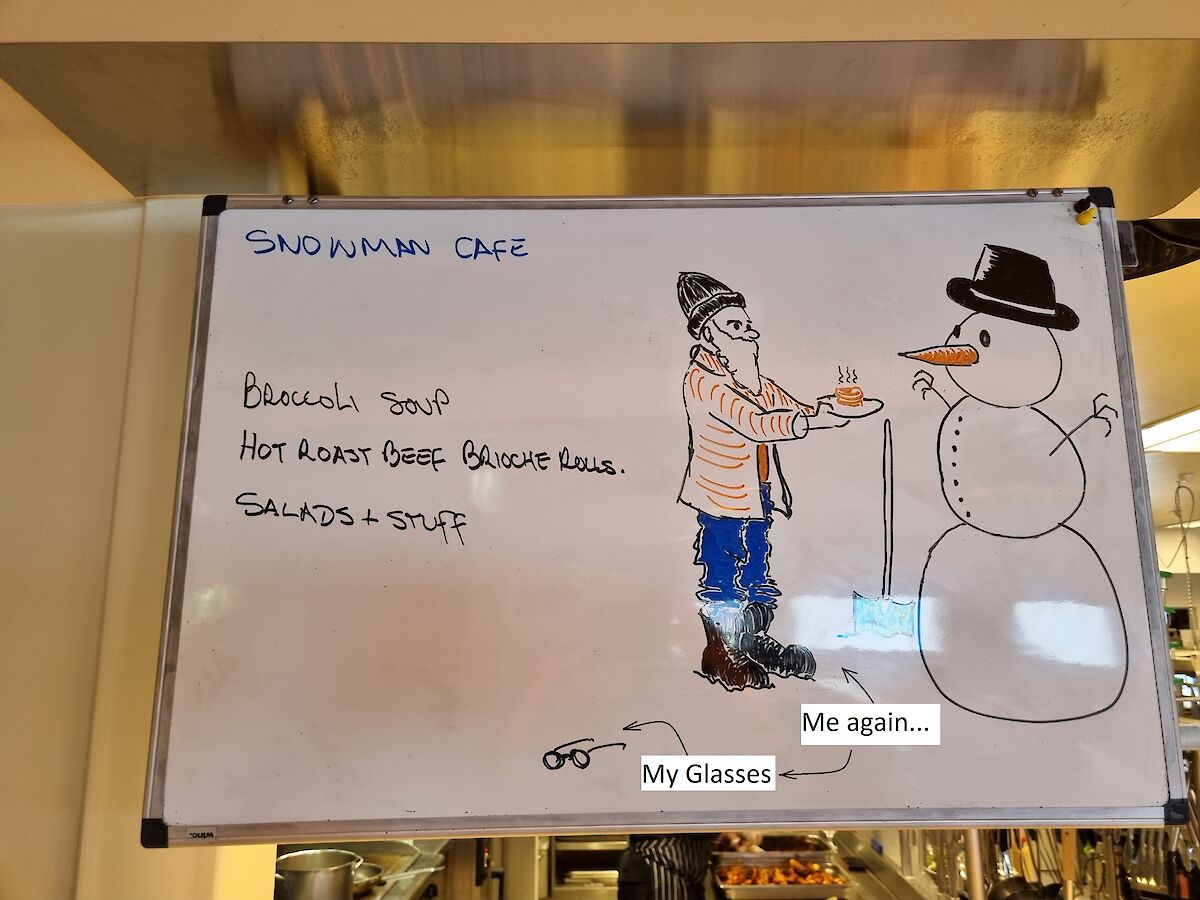 SNOWMAN CAFE
BROCCOLI SOUP
HOT ROAST BEEF BRIOCHE ROLLS.
SALADS + STUFF
Me again...
My Glasses
winc.